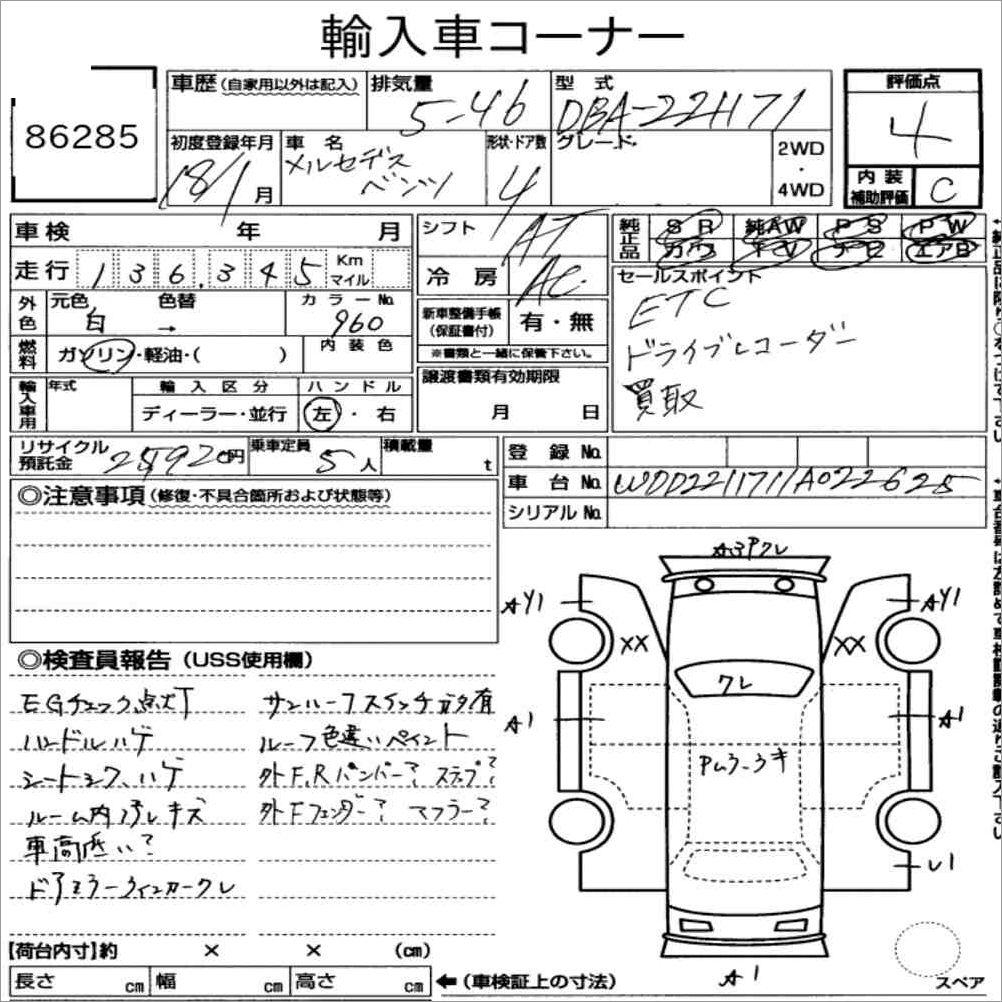 輸入車コーナー
86285
車歴 (自家用以外は記入) 排気量 5-46 型式 DBA-221171
評価点 4
初度登録年月 18/1月 車名 メルセデス ベンツ 形状・ドア数 4 グレード 2WD・4WD
内装補助評価 C
車検 年 月 シフト AT
純正品 SR 純AW PS PW
カワ TV ナビ エアB
走行 136,345 Km マイル 冷房 AC
セールスポイント
ETC
ドライブレコーダー
買取
外色 元色 白 色替 → カラーNo. 960
新車整備手帳(保証書付) 有・無
燃料 ガソリン・軽油・( ) 内装色
※書類と一緒に保管下さい。
輸入車用 年式 輸入区分 ハンドル
ディーラー・並行 左・右
譲渡書類有効期限
月 日
リサイクル預託金 25920円 乗車定員 5人 積載量 t
登録No.
車台No. WDD2211711A022628
シリアルNo.
◎注意事項 (修復・不具合箇所および状態等)
◎検査員報告 (USS使用欄)
EGチェック点灯
ハンドルハゲ
シートシワ、ハゲ
ルーム内汚レキズ
車高低い?
ドアミラーウインカークレ
サンルーフスイッチガタ有
ルーフ色違いペイント
外F,Rバンパー? ステップ?
外Fフェンダー? マフラー?
A3Pクレ
AY1 AY1
XX XX
クレ
A1 A1
U1
A1
スペア
【荷台内寸】約 × × (cm)
長さ cm 幅 cm 高さ cm ←(車検証上の寸法)